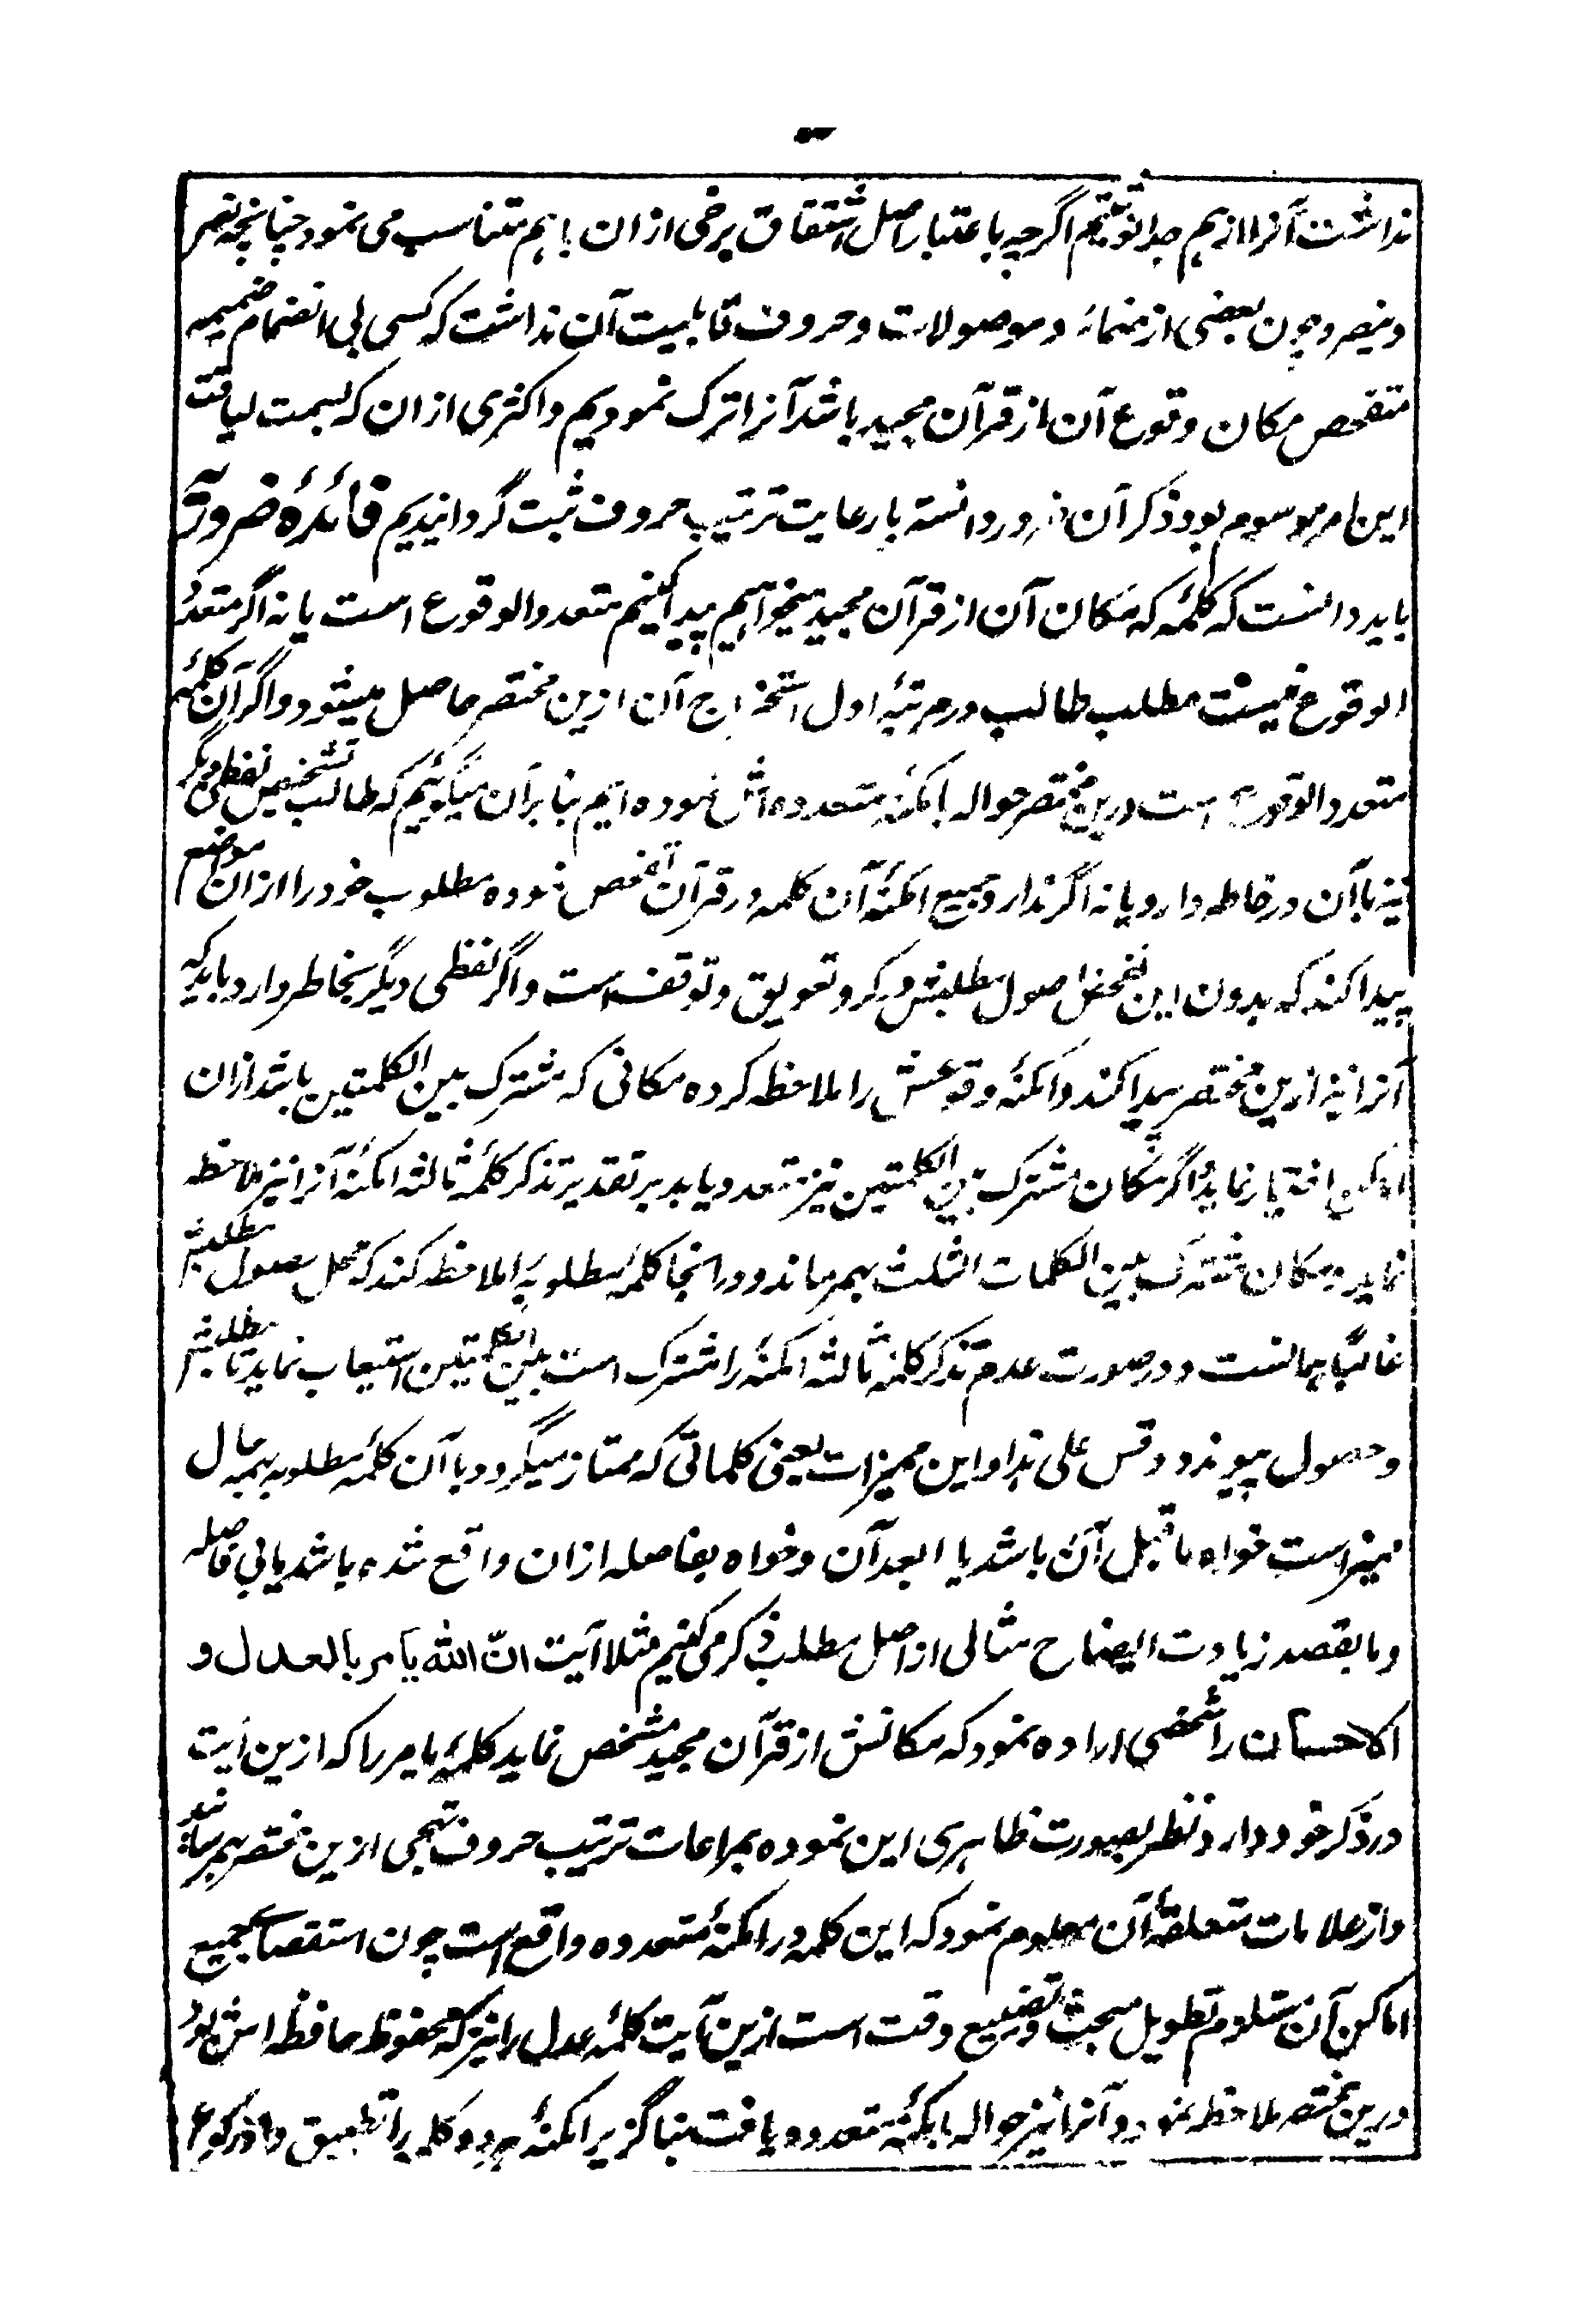 نداشت آنرا از هم جدا نوشتیم اگرچه باعتبار اصل اشتقاق برخی ازان باهم متناسب می نمود چنانچه نصر
وینصر و چون بعضی از ضمائر و موصولات و حروف قابلیت آن نداشت که کسی بی انضمام ضمیمه
متفحص مکان وقوع آن از قرآن مجید باشد آنرا ترک نمودیم و اکثری ازان که بسمت لیاقت
این امر موسوم بود ذکر آن ضرور دانسته بارعایت ترتیب حروف ثبت گردانیدیم فائدهٔ ضروری
باید دانست که کلمهٔ که مکان آن از قرآن مجید میخواهیم پیدا کنیم متعدد الوقوع است یا نه اگر متعدد
الوقوع نیست مطلب طالب در مرتبهٔ اول استخراج آن ازین مختصر حاصل میشود و اگر آن کلمه
متعدد الوقوع است درین مختصر حواله بامکنهٔ متعدده‌اش نموده ایم بنابران میگوئیم که طالب تشخیص لفظی دیگر
نیز باآن در خاطر دارد یا نه اگر ندارد جمیع امکنهٔ آن کلمه در قرآن تفحص نموده مطلوب خود را ازان موضع
پیدا کند که بدون این تفحص حصول مطلبش در گرو تعویق و توقف است و اگر لفظی دیگر بخاطر دارد باید که
آنرا نیز ازین مختصر پیدا کند و امکنهٔ وقوعش را ملاحظه کرده مکانی که مشترک بین الکلمتین باشد ازان
اماکن اختیار نماید و اگر مکان مشترک بین الکلمتین نیز متعدد یابد بر تقدیر تذکر کلمهٔ ثالثه امکنهٔ آنرا نیز ملاحظه
نماید و مکان مشترک بین الکلمات الثلث بهمرساند و در انجا کلمهٔ مطلوبه را ملاحظه کند که محل حصول مطلبش
غالبًا همانست و در صورت عدم تذکر کلمهٔ ثالثه امکنهٔ را مشترک است بین الکلمتین استیعاب نماید تا مطلبش
وحصول پیوندد و قس علی هذا و این ممیزات یعنی کلماتی که ممتاز میگردد باآن کلمهٔ مطلوبه بهمه حال
ممیز است خواه ماقبل آن باشد یا مابعد آن و خواه بفاصله ازان واقع شده باشد یا بی فاصله
وما بقصد زیادت ایضاح مثالی از اصل مطلب ذکر می کنیم مثلا آیت انّ الله یأمر بالعدل و
الاحسان را شخصی اراده نمود که مکانش از قرآن مجید مشخص نماید کلمهٔ یامر را که ازین آیت
در ذکر خود دارد نظر بصورت ظاهری این نموده بمراعات ترتیب حروف تهجی ازین مختصر بهمرساند
واز علامات متعلقهٔ آن معلوم نمود که این کلمه در امکنهٔ متعدده واقع است چون استقصای جمیع
اماکن آن مستلزم تطویل مبحث و تضییع وقت است ازین آیت کلمهٔ عدل را نیز که محفوظ حافظه اش بود
درین مختصر ملاحظه نمود و آنرا نیز حواله بامکنهٔ متعدده یافت بناگزیر امکنهٔ هر دو کلمه را تطبیق داد رکوع